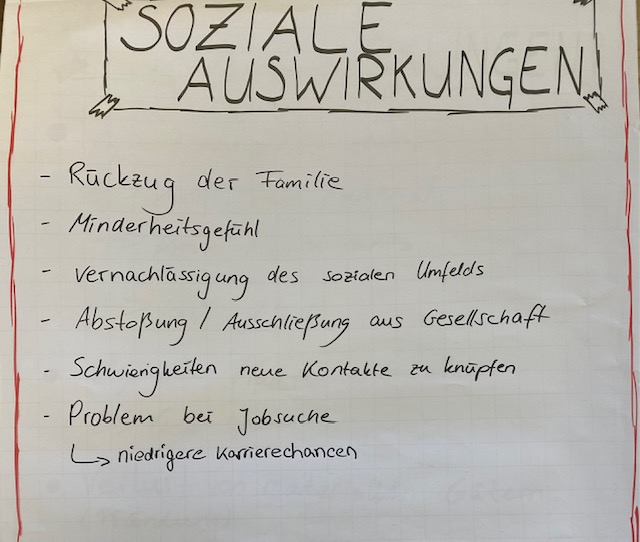 SOZIALE
AUSWIRKUNGEN
- Rückzug der Familie
- Minderheitsgefühl
- Vernachlässigung des sozialen Umfelds
- Abstoßung / Ausschließung aus Gesellschaft
- Schwierigkeiten neue Kontakte zu knüpfen
- Problem bei Jobsuche
↳ niedrigere Karrierechancen